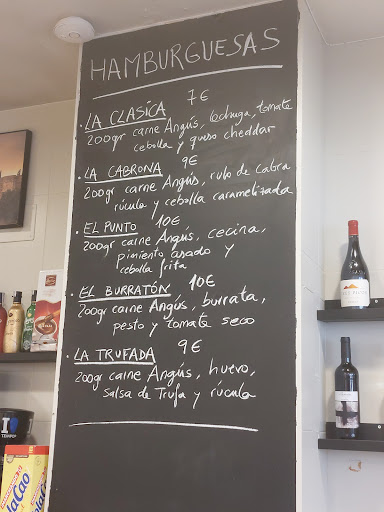 HAMBURGUESAS
· LA CLASICA 7€
200gr carne Angús, lechuga, tomate
cebolla y queso cheddar
· LA CABRONA 9€
200gr carne Angús, rulo de cabra
rúcula y cebolla caramelizada
· EL PUNTO 10€
200gr carne Angús, cecina,
pimiento asado y
cebolla frita
· EL BURRATÓN 10€
200gr carne Angús, burrata,
pesto y tomate seco
· LA TRUFADA 9€
200gr carne Angús, huevo,
salsa de Trufa y rúcula
I
TEMPO
laCao